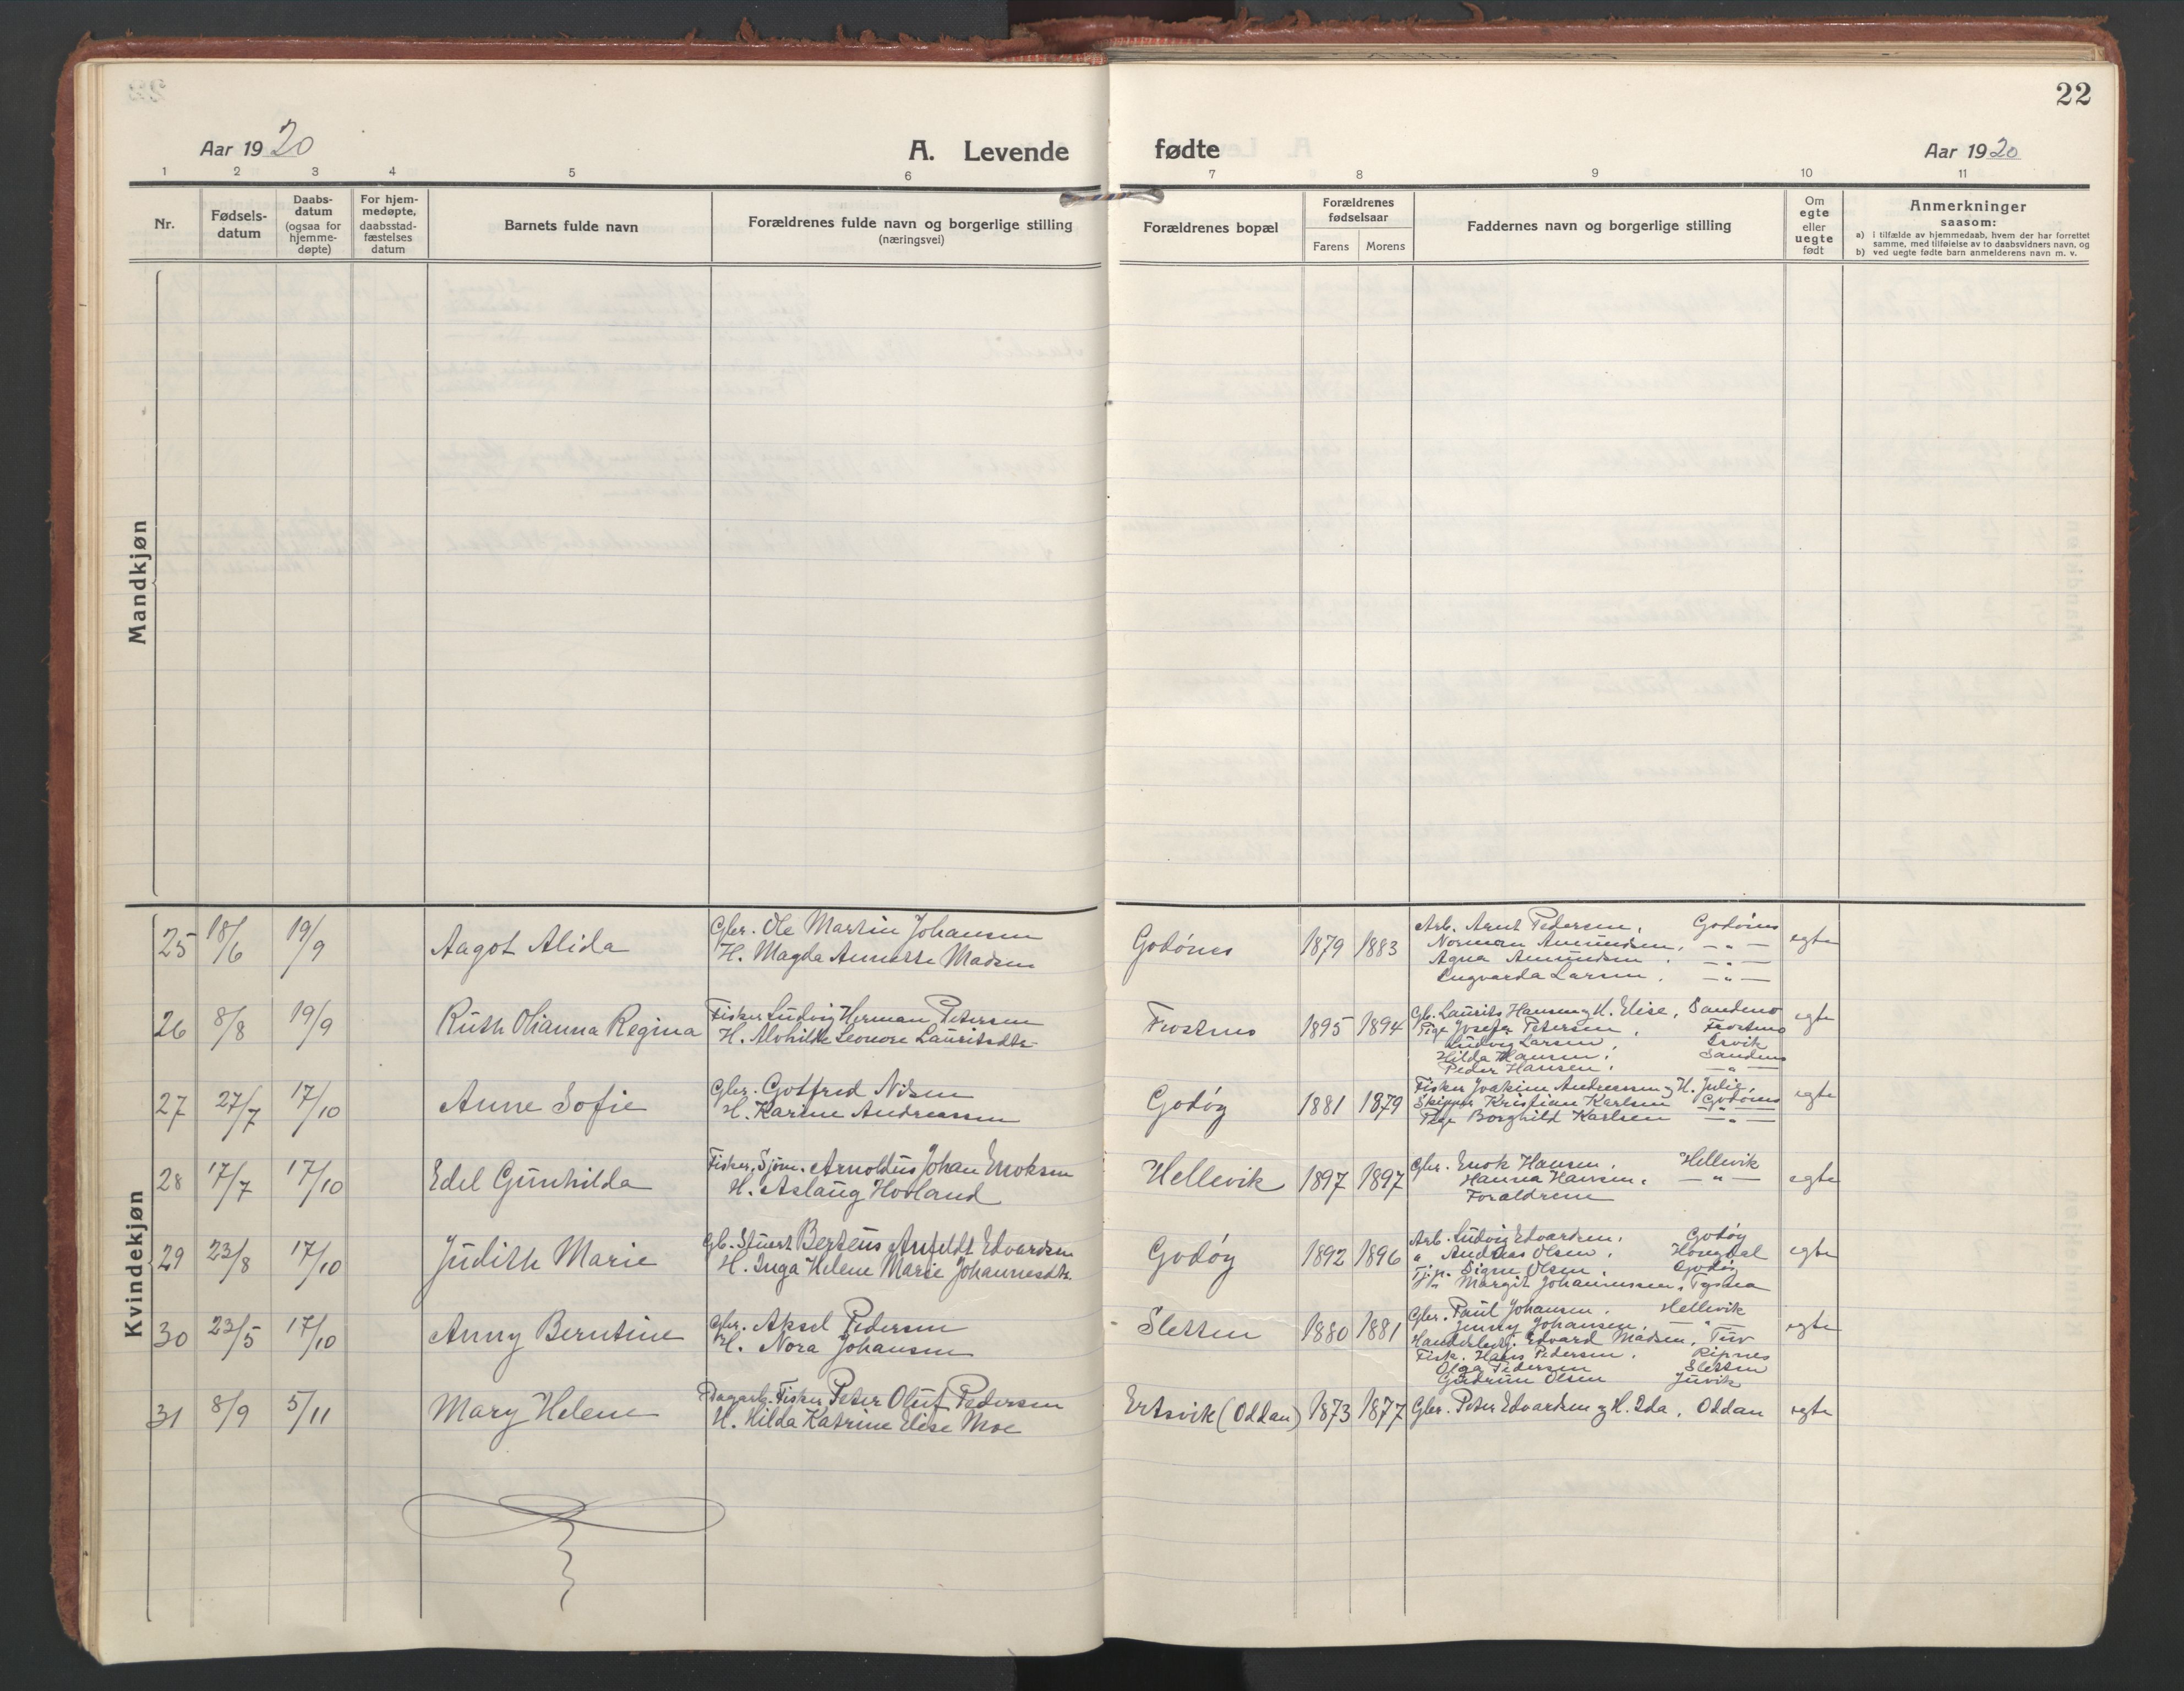 22
Aar 1920
A. Levende fødte
Aar 1920
1 2 3 4 5 6 7 8 9 10 11
Nr.
Fødsels-
datum
Daabs-
datum
(ogsaa for
hjemme-
døpte)
For hjem-
medøpte,
daabsstad-
fæstelses
datum
Barnets fulde navn
Forældrenes fulde navn og borgerlige stilling
(næringsvei)
Forældrenes bopæl
Forældrenes
fødselsaar
Farens Morens
Faddernes navn og borgerlige stilling
Om
egte
eller
uegte
født
Anmerkninger
saasom:
a) i tilfælde av hjemmedaab, hvem der har forrettet
samme, med tilføielse av to daabsvidners navn, og
b) ved uegte fødte barn anmelderens navn m. v.
Mandkjøn
Kvindekjøn
25 18/6 19/9 Aagot Alida
Gbr. Ole Martin Johansen
H. Magda Annette Madsen
Godønes 1879 1883
Arb. Arnt Pedersen, Godønes
Norman Amundsen, — " —
Agna Amundsen, — " —
Ingvarda Larsen, — " —
egte
26 8/8 19/9 Ruth Olianna Regina
Fisker Ludvig Herman Petersen
H. Alvhilde Leonore Lauritsdtr.
Frostnes 1895 1894
Gb. Laurits Hansen og H. Elise, Sandenes
Pige Josefa Petersen, Frostnes
Ludvig Larsen,
Hilda Hansen, Sandnes
Peder Hansen, — " —
egte
27 27/7 17/10 Anne Sofie
Gbr. Gotfred Nilsen
H. Karine Andreassen
Godøy 1881 1879
Fisker Joakim Andreassen og H. Julie,
Skipper Kristian Karlsen Godønes
Pige Borghild Karlsen — " —
egte
28 17/7 17/10 Edel Gunhilda
Fisker, Sjøm. Arnoldus Johan Enoksen
H. Aslaug Hovland
Hellevik 1897 1897
Gbr. Enok Hansen, Hellevik
Hanna Hansen, — " —
Forældrene
egte
29 23/8 17/10 Judith Marie
Gb. Stuert Berteus Anfeldt Edvardsen
H. Inga Helene Marie Johannesdtr.
Godøy 1892 1896
Arb. Ludvig Edvardsen, Godøy
" Andreas Olsen, Hongdal
Tj.p. Signe Olsen, Godøy
Margit Johannessen,
egte
30 23/5 17/10 Anny Berntine
Gbr. Aksel Pedersen
H. Nora Johansen
Sletten 1880 1881
Gbr. Paul Johansen, Hellevik
Jenny Johansen, — " —
Handelsbetj. Edvard Madsen, Tuv
Fisk. Hans Pedersen, Ripnes
Olga Pedersen Sletten
Gudrun Olsen Juvik
egte
31 8/9 5/11 Mary Helene
Dagarb. Fisker Peter Oluf Pedersen
H. Hilda Katrine Elise Moe
Ertsvik (Oddan) 1873 1877
Gbr. Peter Edvardsen og H. Ida, Oddan
egte